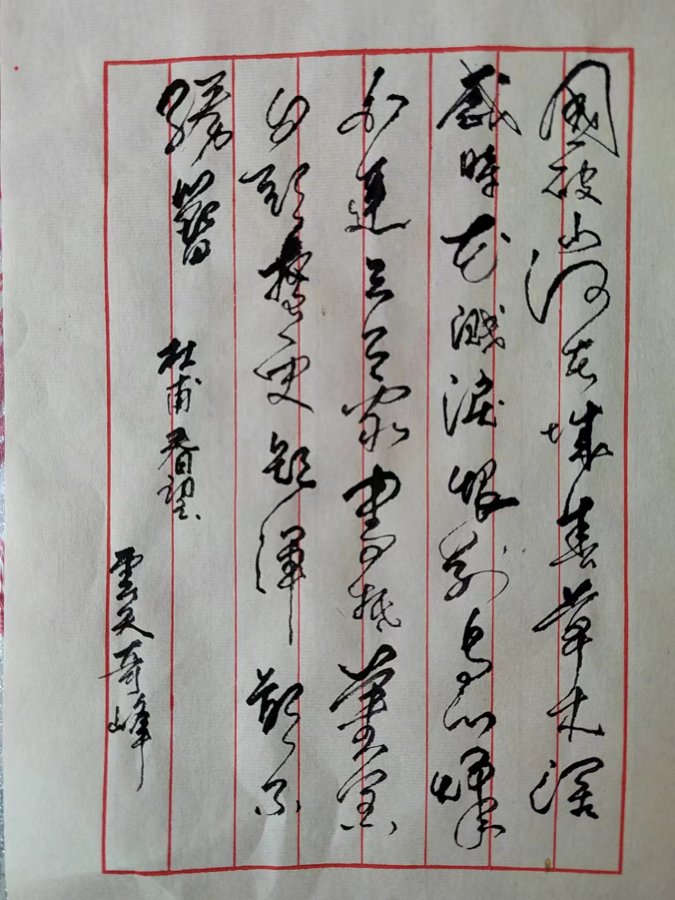 國破山河在城春草木深
感時花濺淚恨别鳥心烽
火連三月家書抵萬金
白頭搔更短渾欲不
勝簪
杜甫春望
雲天奇峰